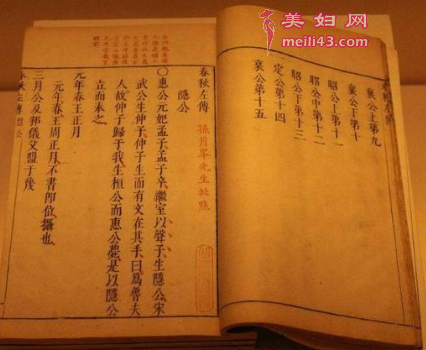 美妇网
meili43.com
襄公上第九
襄公下第十
昭公上第十一
昭公中第十二
昭公下第十三
定公第十四
哀公第十五
春秋左傳
孫月峯先生批點
隱公
○惠公元妃孟子孟子卒繼室以聲子生隱公宋
武公生仲子仲子生而有文在其手曰爲魯夫
人故仲子歸于我生桓公而惠公薨是以隱公
立而奉之
元年春王正月
元年春王周正月不書即位攝也
三月公及邾儀父盟于蔑
春秋左傳 隱公